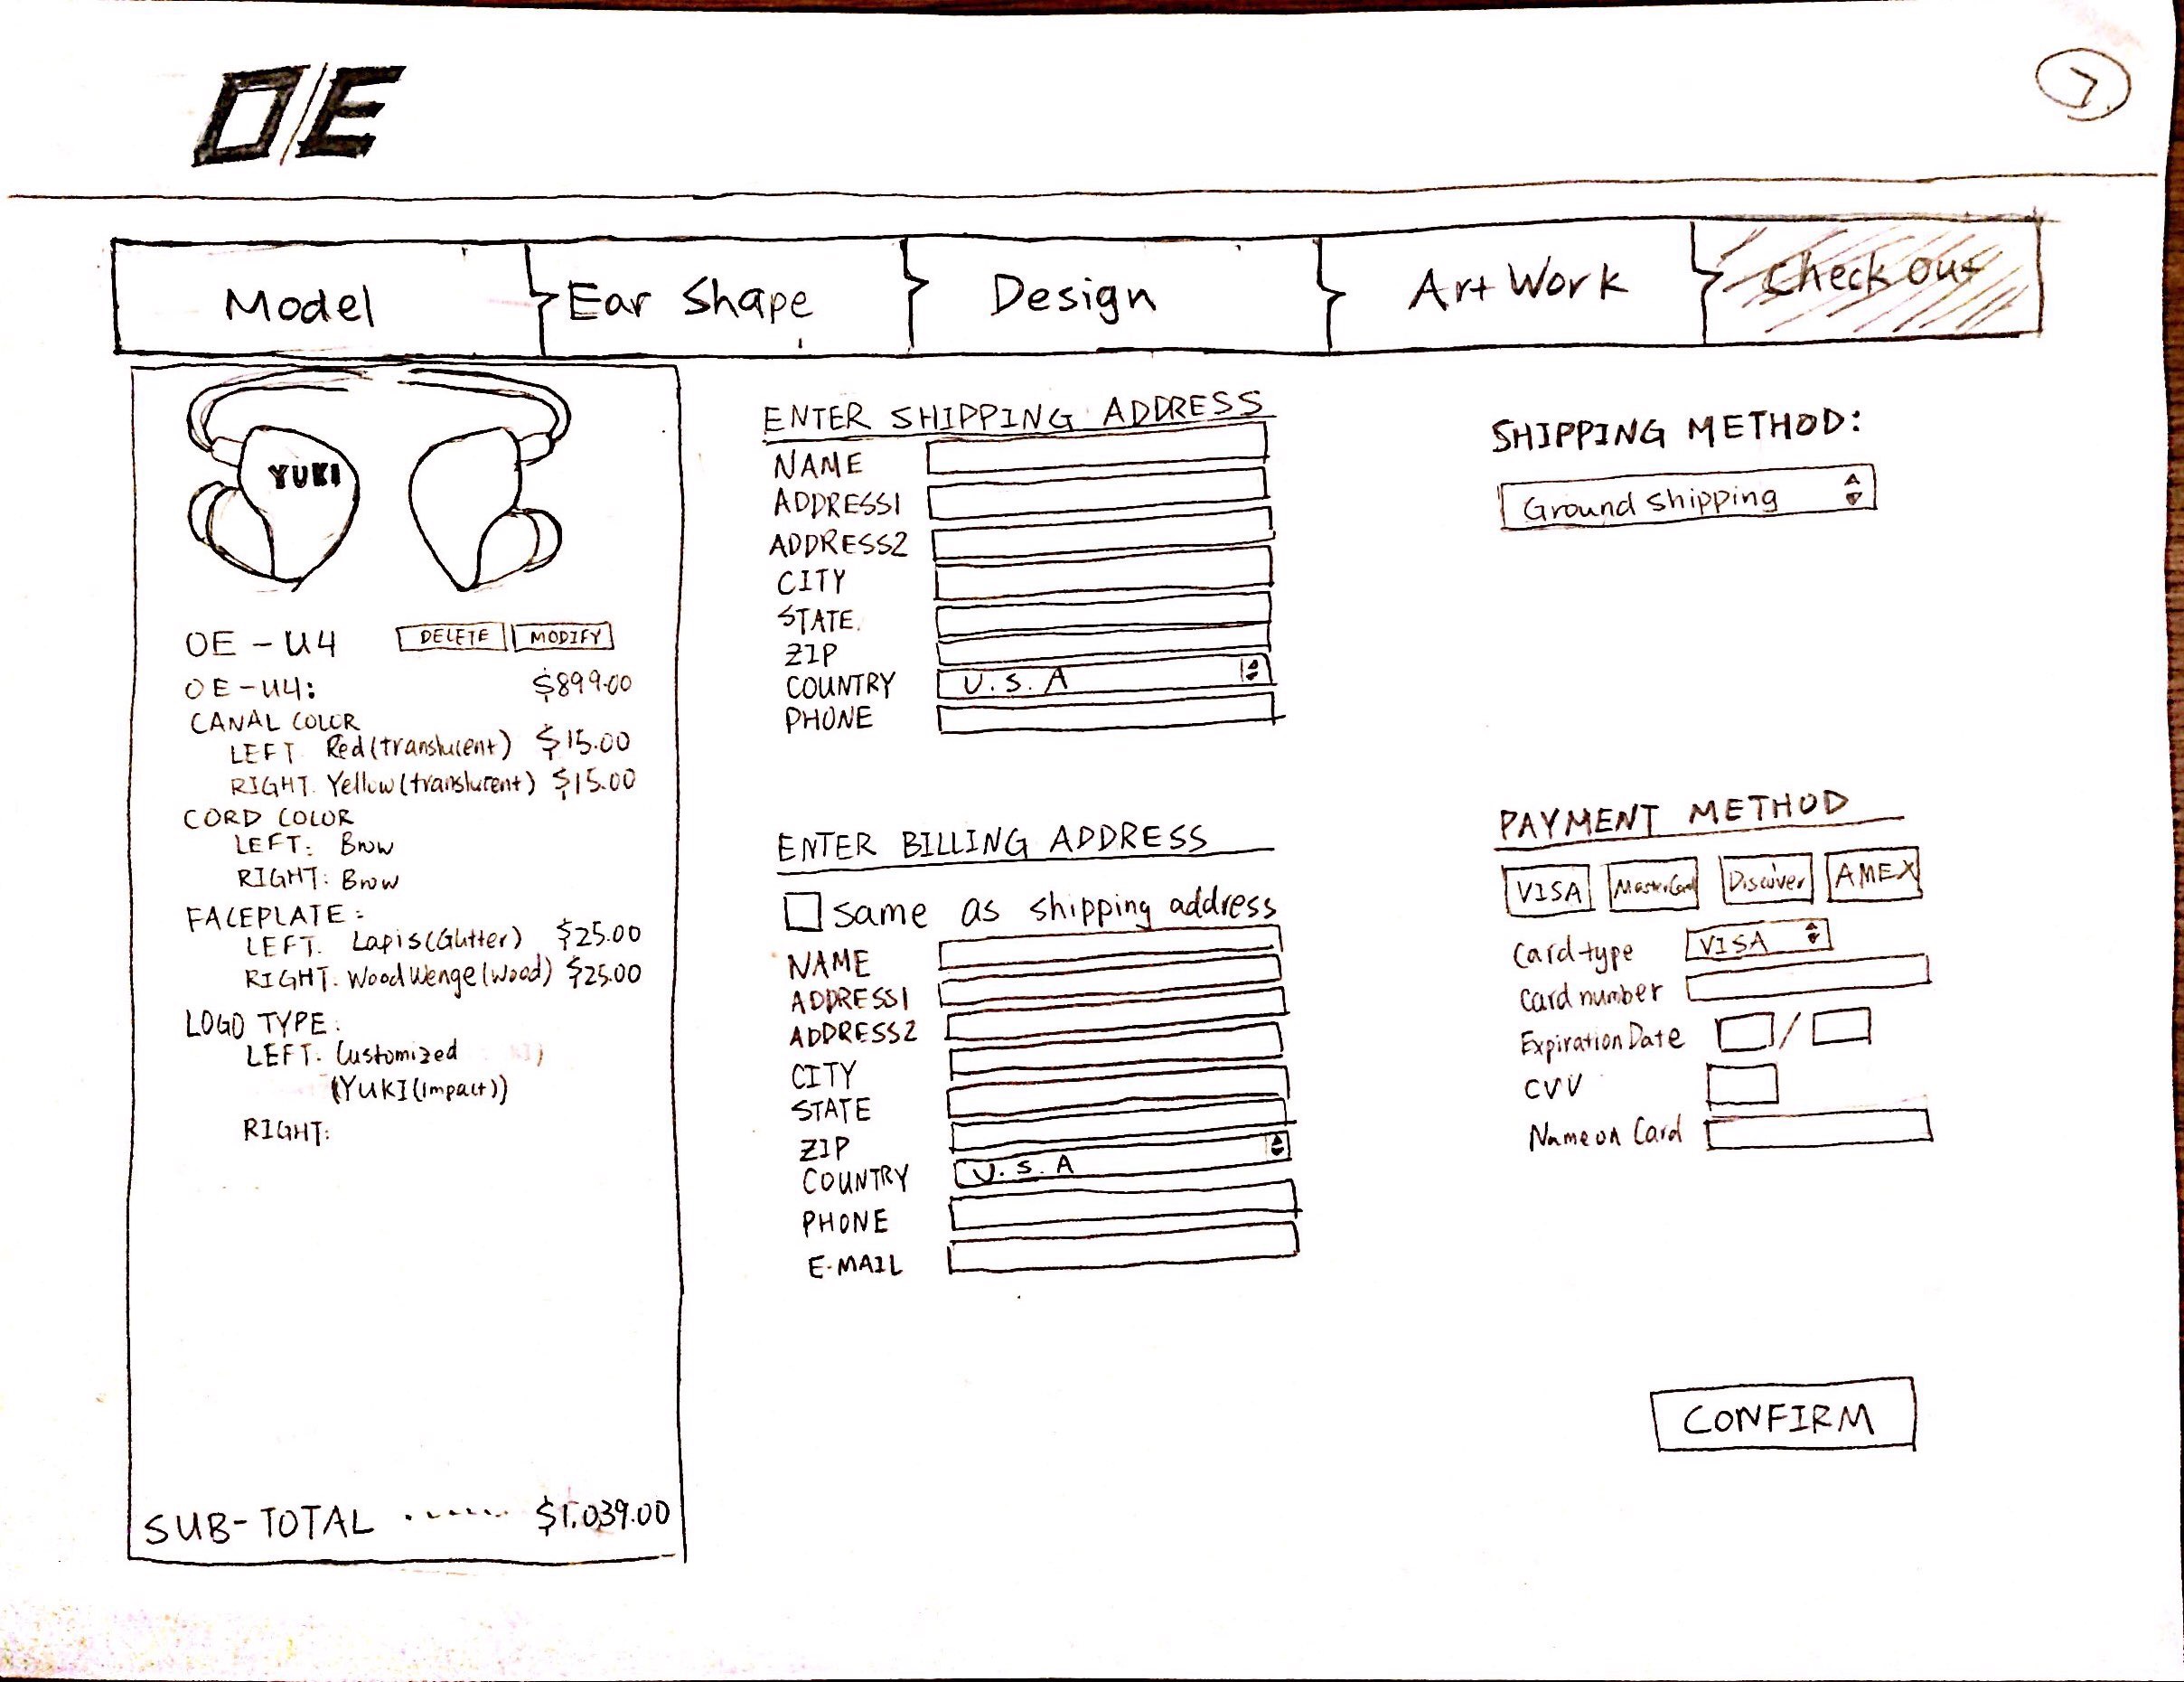 O/E
7
Model
Ear Shape
Design
Art Work
Check out
YUKI
OE - U4 DELETE MODIFY
OE-U4: $899.00
CANAL COLOR
LEFT. Red (translucent) $15.00
RIGHT. Yellow (translucent) $15.00
CORD COLOR
LEFT: Brow
RIGHT: Brow
FACEPLATE:
LEFT. Lapis(Glitter) $25.00
RIGHT. Wood Wenge (wood) $25.00
LOGO TYPE:
LEFT. Customized
(YUKI (Impact))
RIGHT:
SUB-TOTAL ........ $1,039.00
ENTER SHIPPING ADDRESS
NAME
ADDRESS1
ADDRESS2
CITY
STATE.
ZIP
COUNTRY U.S.A
PHONE
ENTER BILLING ADDRESS
same as shipping address
NAME
ADDRESS1
ADDRESS2
CITY
STATE
ZIP
COUNTRY U.S.A
PHONE
E-MAIL
SHIPPING METHOD:
Ground shipping
PAYMENT METHOD
VISA MasterCard Discover AMEX
Card type VISA
Card number
Expiration Date /
CVV
Name on Card
CONFIRM